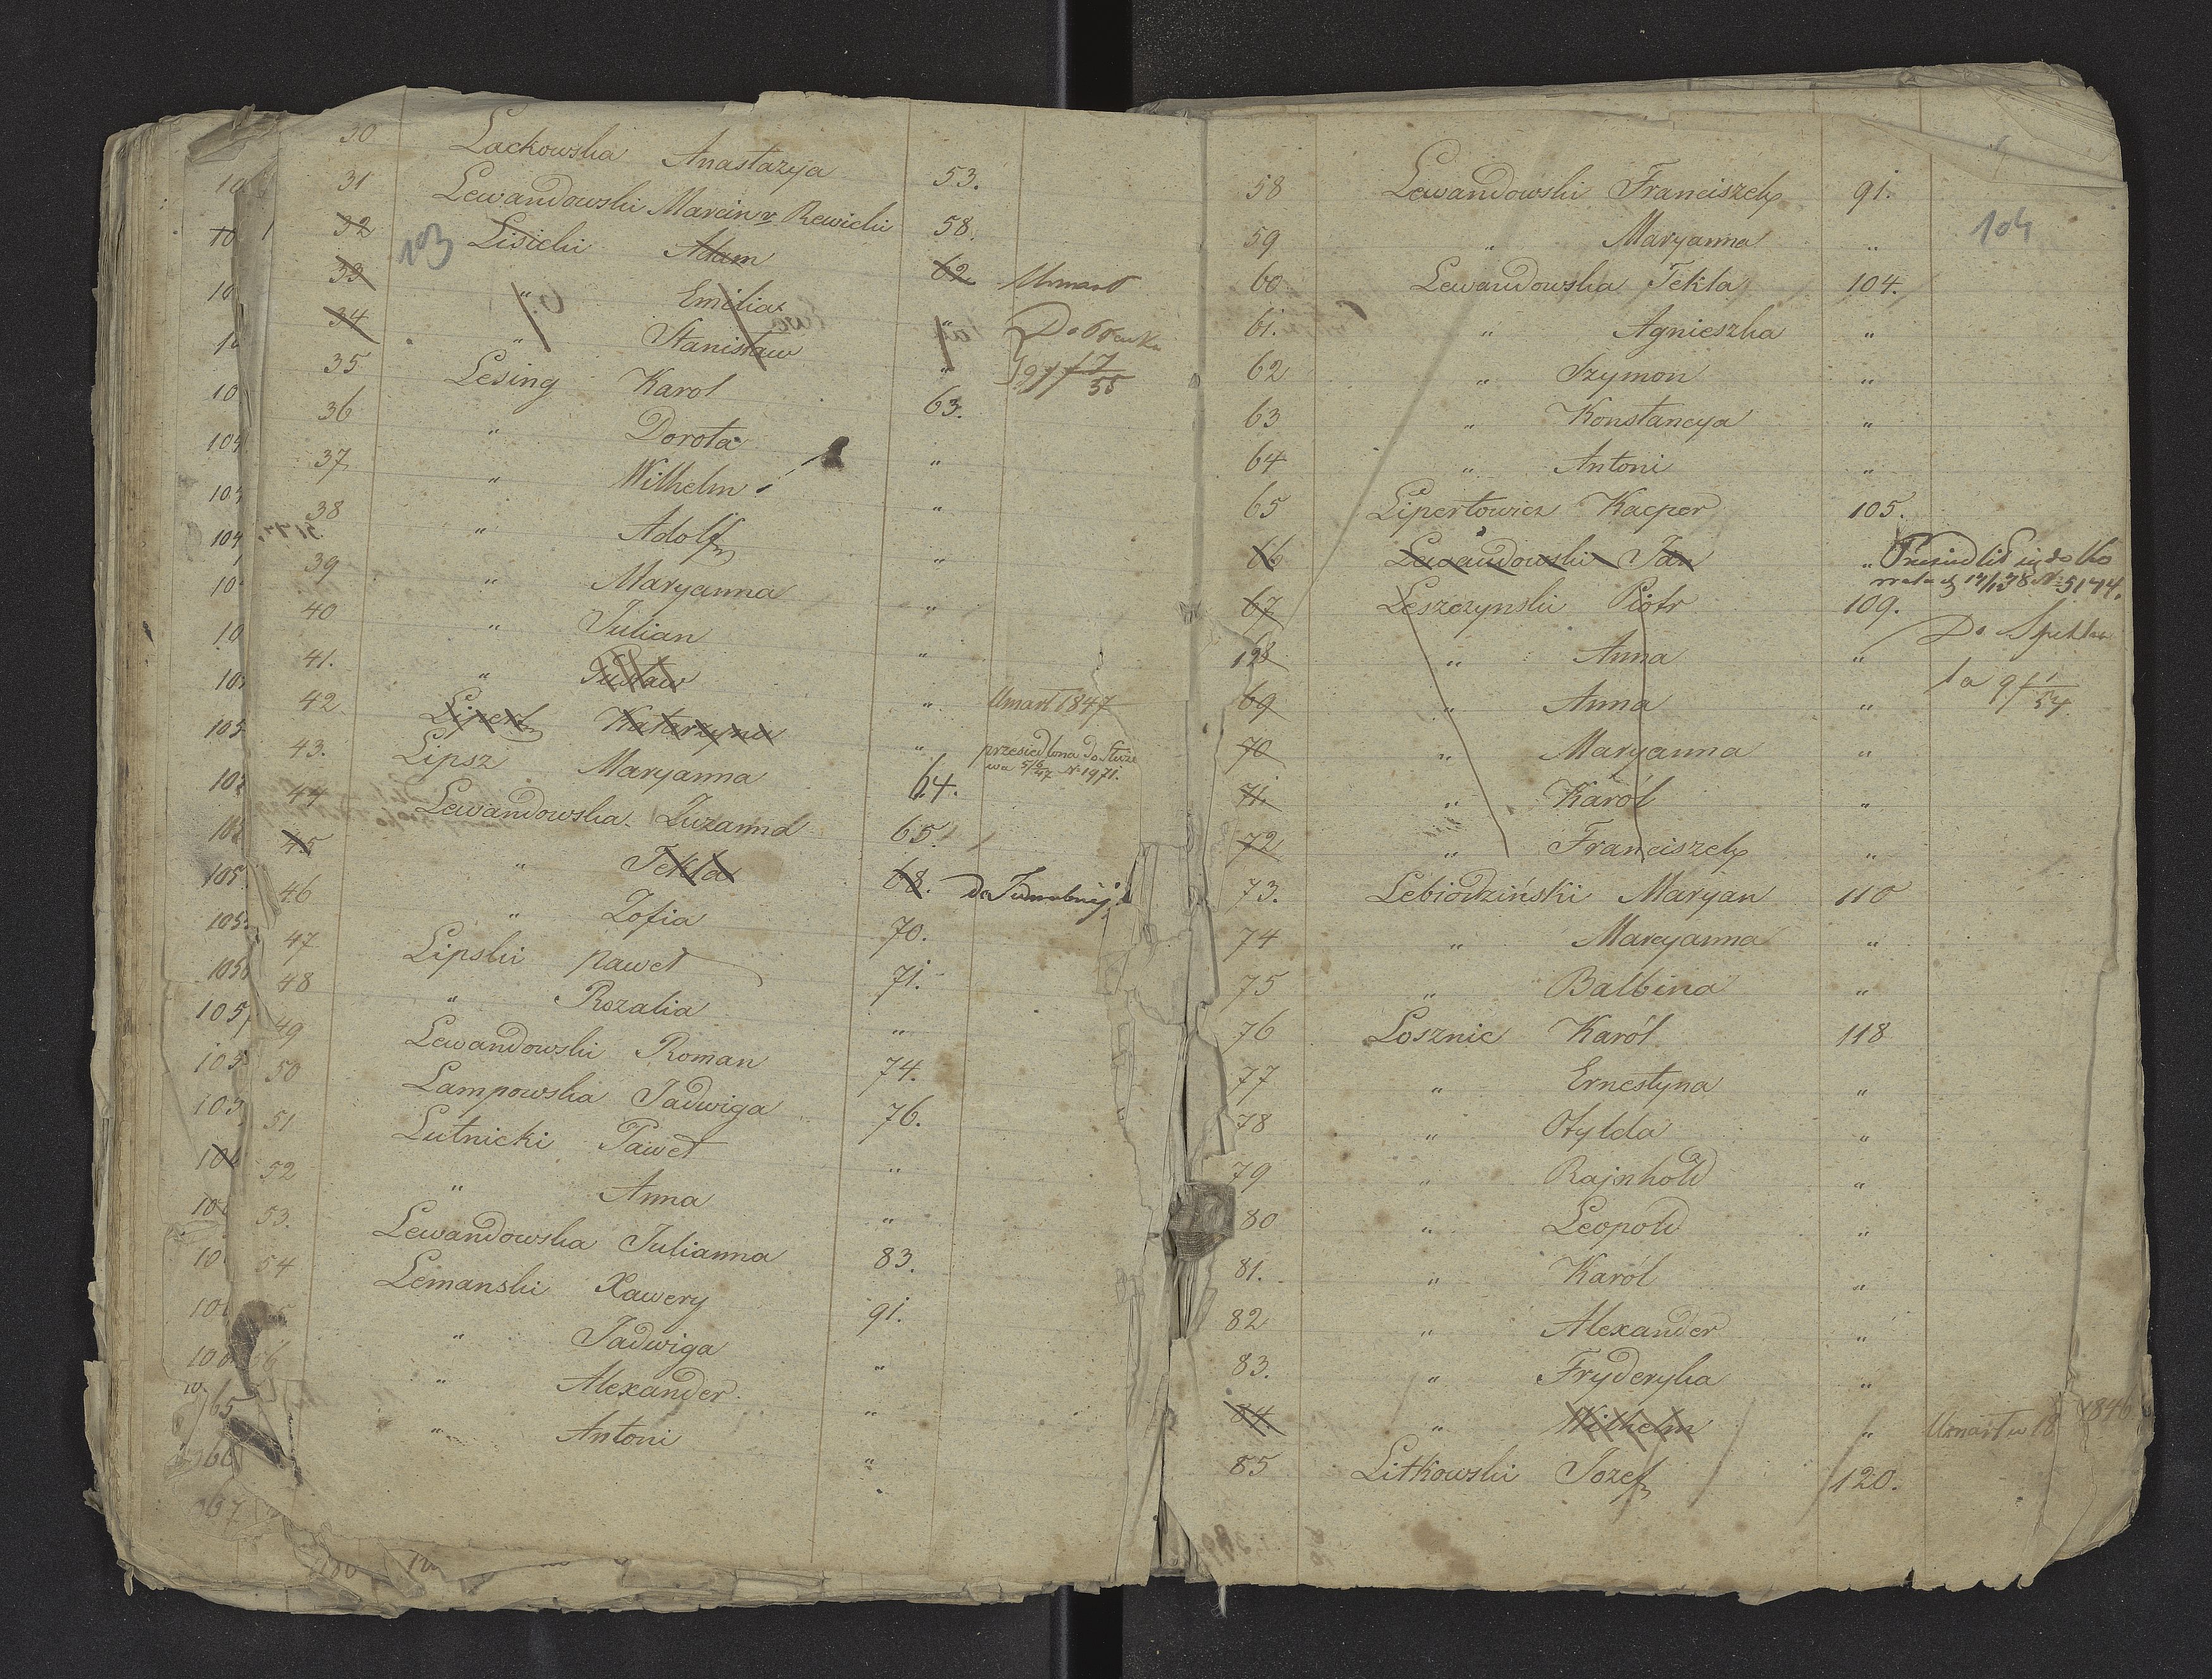 30 Lackowska Anastazya 53.
31 Lewandowski Marcin v. Rewicki 58.
103
32 Lisicki Adam 62 Umarł
33 " Emilia "
34 " Stanisław "
35 Lesing Karol 63.
36 " Dorota "
37 " Wilhelm "
38 " Adolf "
39 " Maryanna "
40 " Julian "
41. " Gustaw " Umarł 1847
42 Lipert Katarzyna " przesiedlona do
wa 5/6 47 N 1971.
43. Lipsz Maryanna 64.
44 Lewandowska Zuzanna 65.
45 " Tekla 68. do
46 " Zofia 70.
47 Lipski Paweł 71.
48 " Rozalia "
49 Lewandowski Roman 74.
50 Lampowska Jadwiga 76.
51 Lutnicki Paweł "
52 " Anna "
53. Lewandowska Julianna 83.
54 Lemanski Xawery 91.
" Jadwiga "
" Alexander "
" Antoni "
104
58 Lewandowski Franciszek 91.
59 " Maryanna "
60 Lewandowska Tekla 104.
61. " Agnieszka "
62 " Szymon "
63 " Konstancya "
64 " Antoni "
65 Lipertowicz Kacper 105.
66 Lewandowski Jan " N 5174.
67 Leszczynski Piotr 109.
128 " Anna " Do
69 " Anna "
70 " Maryanna "
71. " Karól "
72 " Franciszek "
73. Lebiodziński Maryan 110
74 " Maryanna "
75 " Balbina "
76 Losznic Karól 118
77 " Ernestyna "
78 " Otylda "
79 " Rajnhold "
80 " Leopold "
81. " Karól "
82 " Alexander "
83. " Fryderyka "
84. " Wilhelm " Umarł w 18 1846
85 Litkowski Jozef 120.